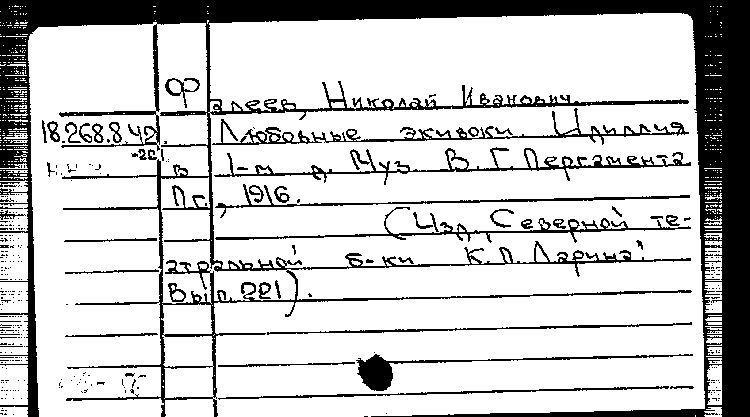 Фалеев, Николай Иванович.
18.268.8.42 Любовные экивоки. Идиллия
-221 в 1-м д. Муз. В. Г. Пергамента
Пг., 1916.
(Изд. "Северной те-
атральной б-ки К. П. Ларина"
Вып. 221).